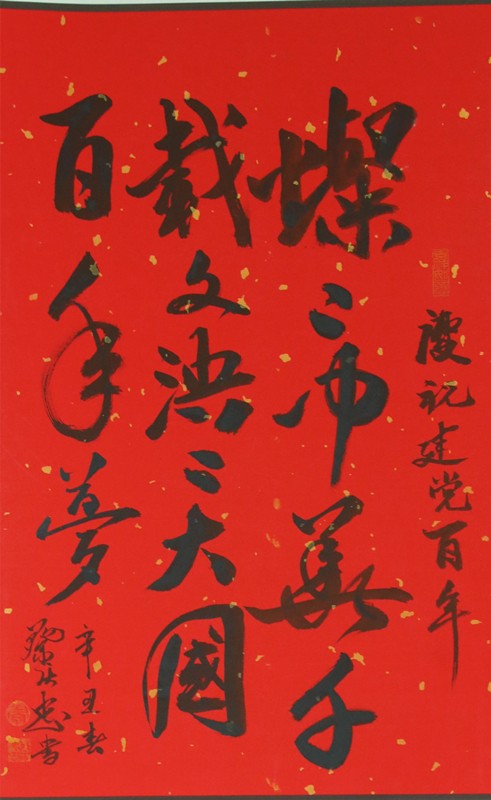 慶祝建党百年
燦〻中華千
載文泱〻大國
百年夢
辛丑春
忠書